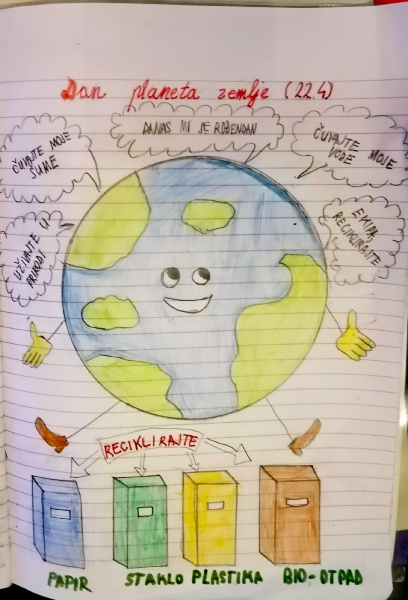 Dan planeta zemlje (22.4)
DANAS MI JE ROĐENDAN
ČUVAJTE MOJE
ŠUME
ČUVAJTE MOJE
VODE
UŽIVAJTE U
PRIRODI
EKIPA
RECIKLIRAJTE
RECIKLIRAJTE
PAPIR STAKLO PLASTIKA BIO-OTPAD